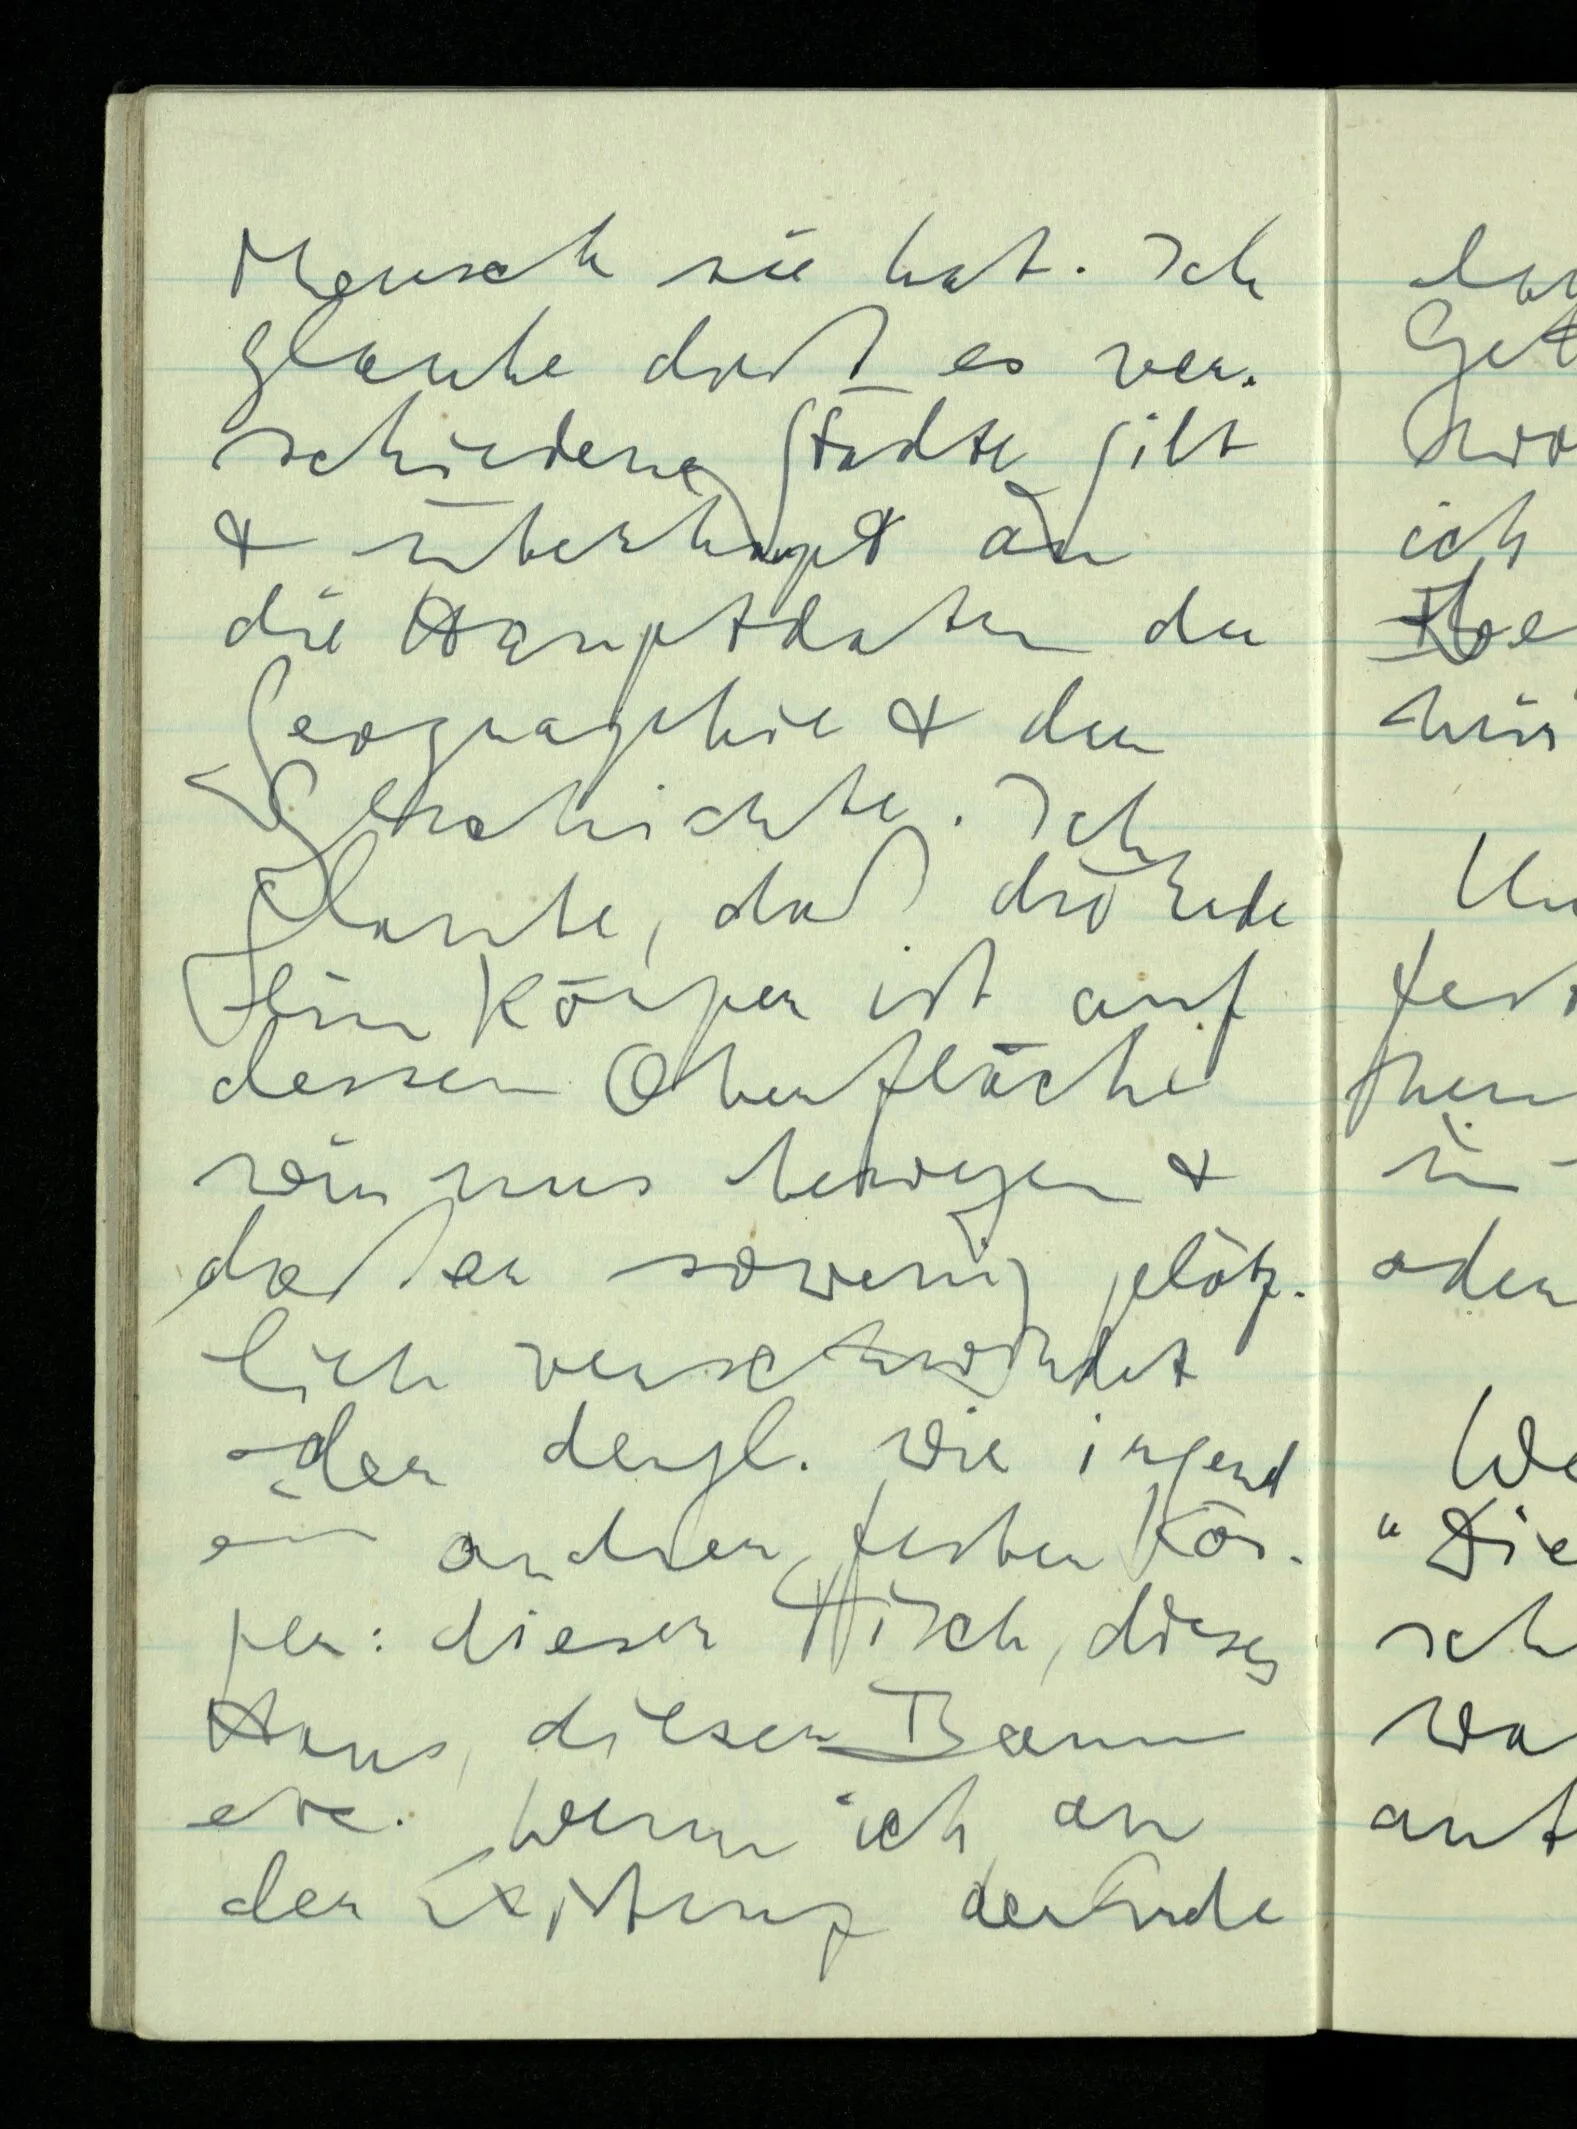 Mensch sie hat. Ich
glaube daß es ver-
schiedene Städte gibt
& überhaupt an
die Hauptdaten der
Geographie & der
Geschichte. Ich
glaube, daß die Erde
ein Körper ist auf
dessen Oberfläche
wir uns bewegen &
daß er sowenig plötz-
lich verschwindet
oder dergl. wie irgend
ein andrer fester Kör-
per: dieser Tisch, dieses
Haus, dieser Baum
etc. Wenn ich an
der Existenz der Erde
ich
oder